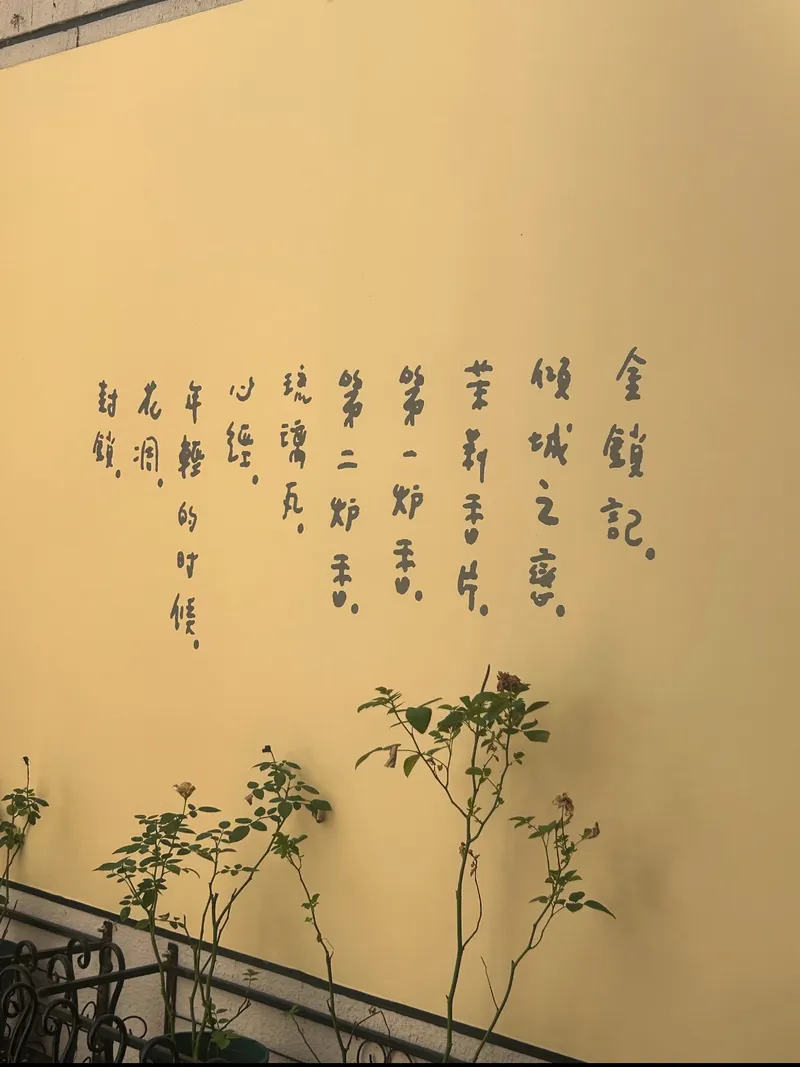 金鎖記.
傾城之戀.
茉莉香片.
第一炉香.
第二炉香.
琉璃瓦.
心經.
年輕的时候.
花凋.
封鎖.